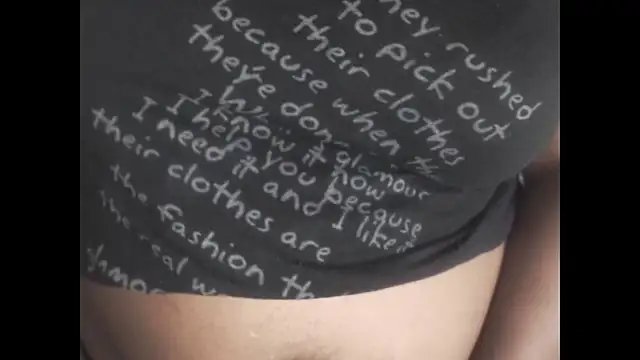 hey rushed
to pick out
their clothes
because when th
they're don
I know it glamour
I help you now
I need it and because
their clothes are I like it
the fashion th
the real w